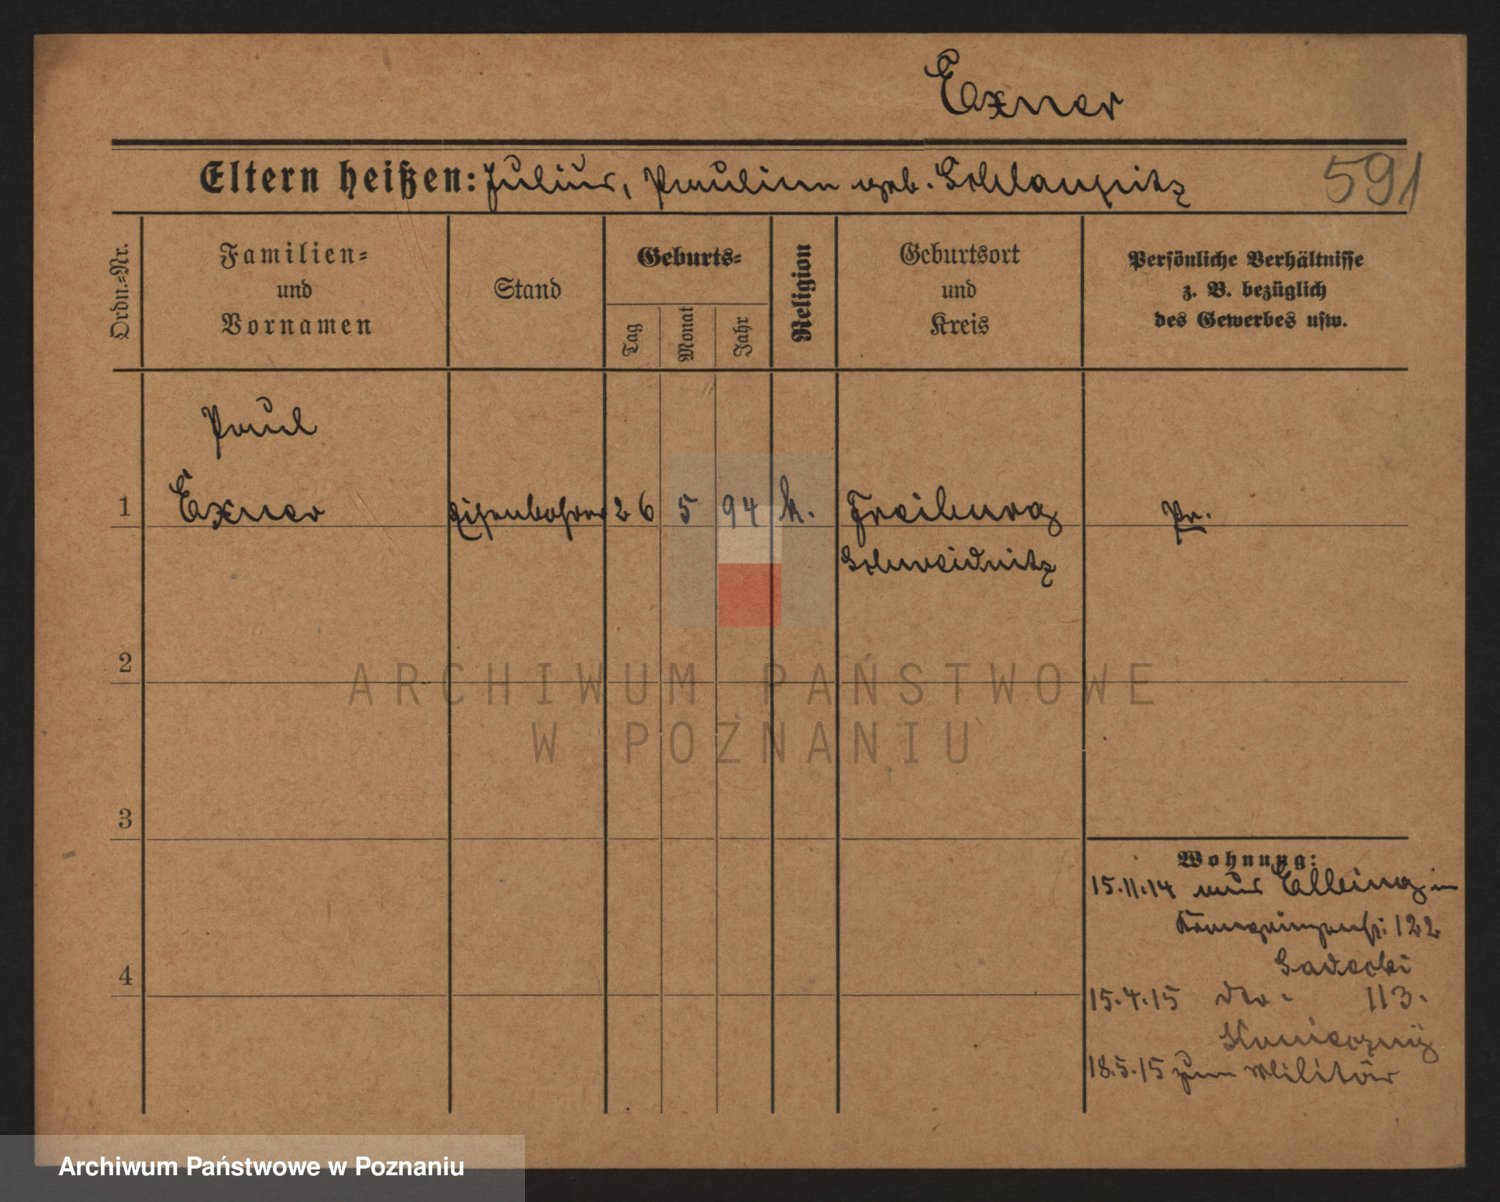 Exner
Eltern heißen: Julius, Pauline geb. Schlaupitz
591
Ordn.-Nr.
Familien-
und
Vornamen
Stand
Geburts-
Tag
Monat
Jahr
Religion
Geburtsort
und
Kreis
Persönliche Verhältnisse
z. B. bezüglich
des Gewerbes usw.
Paul
1 Exner Eisenbohrer 26 5 94 k. Freiburg Pr.
Schweidnitz
2
3
4
Wohnung:
15.11.14 aus Elbing in
122
Sadecki
15.4.15 dto - 113.
Konieczny
18.5.15 zum Militär
ARCHIWUM PAŃSTWOWE
W POZNANIU
Archiwum Państwowe w Poznaniu